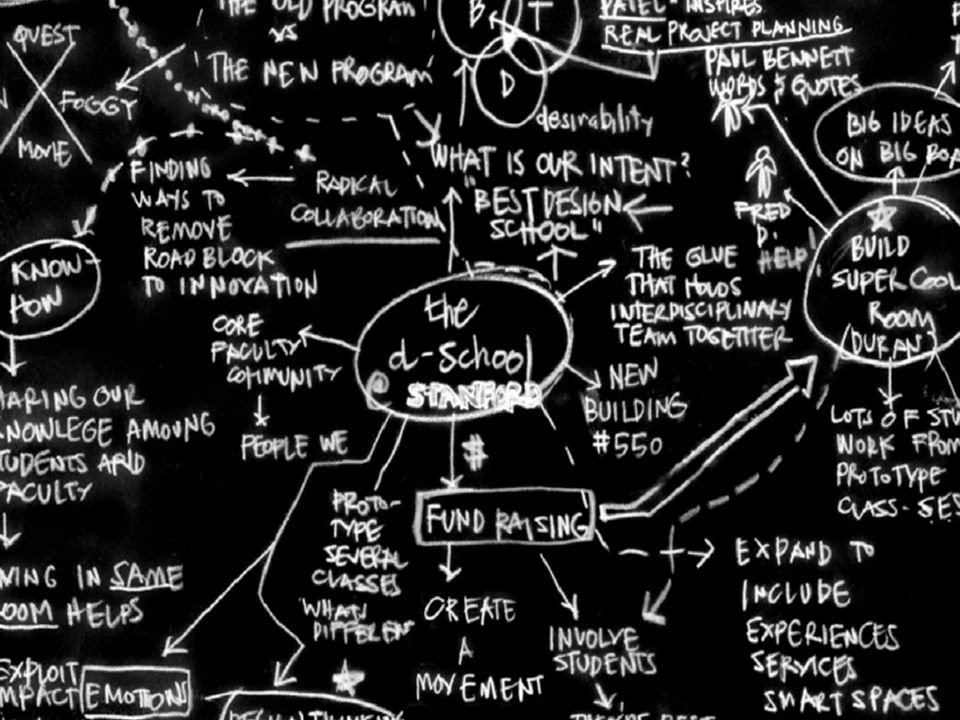 THE OLD PROGRAM
VS
THE NEW PROGRAM
QUEST
FOGGY
MOVIE
B
T
D
desirability
INSPIRES
REAL PROJECT PLANNING
PAUL BENNETT
WORDS & QUOTES
BIG IDEAS
ON BIG
FINDING
WAYS TO
REMOVE
ROAD BLOCK
TO INNOVATION
RADICAL
COLLABORATION
WHAT IS OUR INTENT?
"BEST DESIGN
SCHOOL"
FRED
D.
HELP
BUILD
SUPER COOL
ROOM
(DURAN)
KNOW-
HOW
THE GLUE
THAT HOLDS
INTERDISCIPLINARY
TEAM TOGETHER
the
d-school
@ STANFORD
CORE
FACULTY
COMMUNITY
PEOPLE WE
NEW
BUILDING
#550
LOTS OF
WORK FROM
PROTOTYPE
CLASS-
OUR
KNOWLEGE AMOUNG
AND
$
FUND RAISING
PROTO-
TYPE
SEVERAL
CLASSES
WHATS
CREATE
A
MOVEMENT
INVOLVE
STUDENTS
EXPAND TO
INCLUDE
EXPERIENCES
SERVICES
SMART SPACES
IN SAME
HELPS
EXPLOIT
EMOTIONS